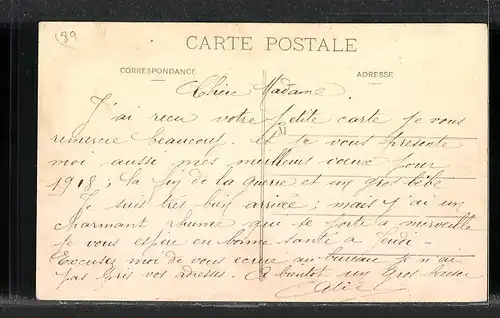 89
CARTE POSTALE
CORRESPONDANCE
ADRESSE
Chère Madame
J'ai reçu votre petite carte je vous
remercie beaucoup. et je vous présente
moi aussi mes meilleurs vœux pour
1918; la fin de la guerre et un gros bébé
Je suis très bien arrivée; mais j'ai un
charmant rhume qui se porte à merveille
Je vous espère en bonne santé à jeudi -
Excusez moi de vous écrire au bureau je n'ai
pas pris vos adresses. A bientôt un gros baiser